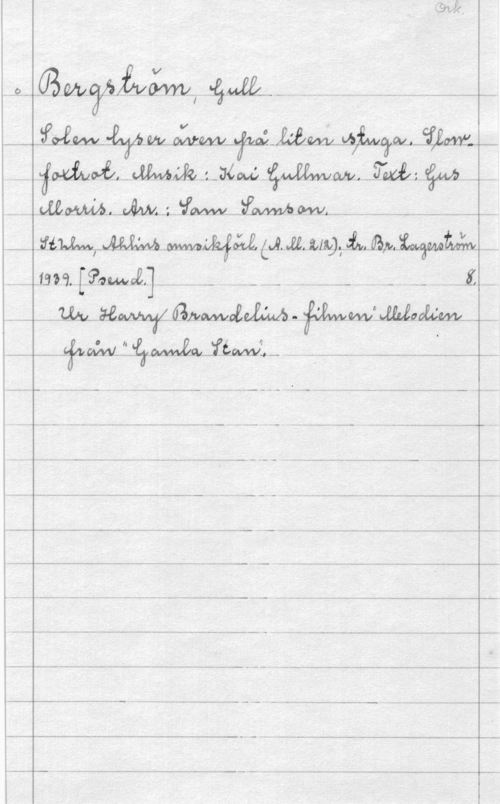 Ork.
Bergström, Gull
Solen lyser även på liten stuga. Slow-
foxtrot. Musik: Kai Gullmar. Text: Gus
Morris. Arr.: Sam Samson.
Sthlm, Ahlins musikförl. (A.M. 212); tr. Br. Lagerström
1939. [Pseud.] 8.
Ur Harry Brandelius-filmen "Melodien
från "Gamla Stan".